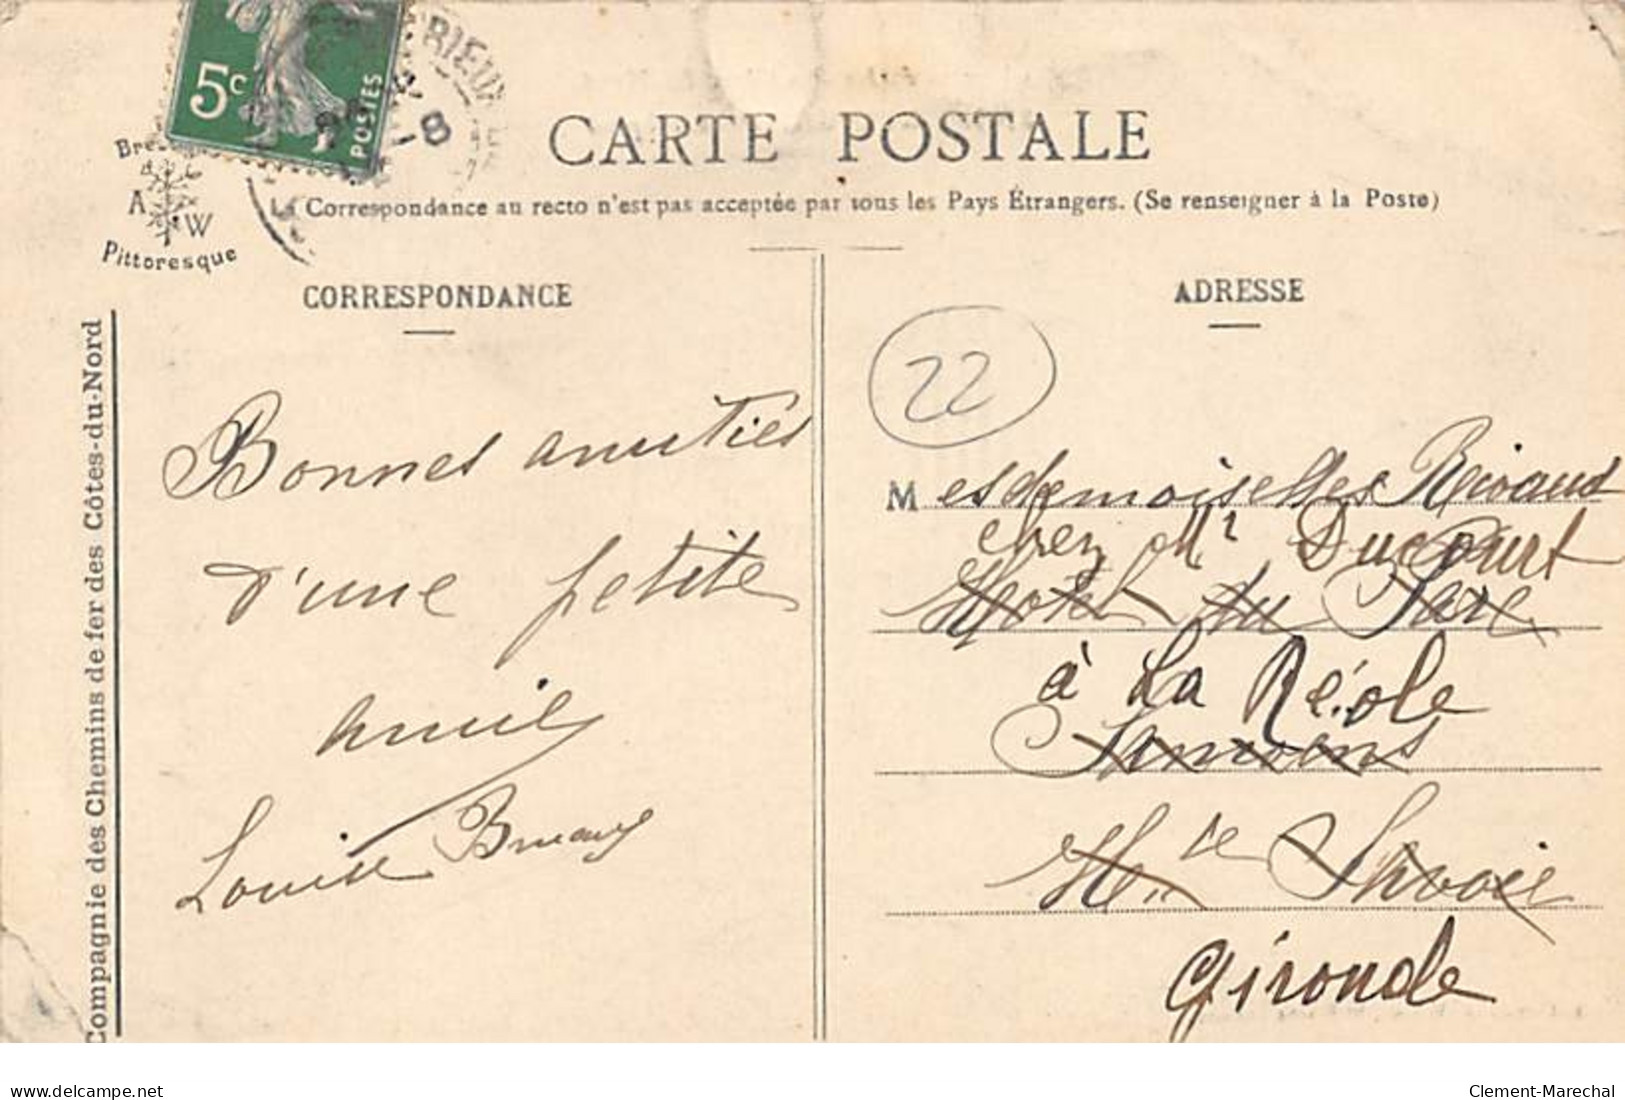 5c
POSTES
BRIEU
-8
A W
Pittoresque
CARTE POSTALE
La Correspondance au recto n'est pas acceptée par tous les Pays Étrangers. (Se renseigner à la Poste)
CORRESPONDANCE
Compagnie des Chemins de fer des Côtes-du-Nord
Bonnes amitiés
d'une petite
amie
Louise
ADRESSE
22
Mesdemoiselles Rivaud
chez Mr Ducourt
Hotel du Parc
à La Réole
Samoëns
Hte Savoie
Gironde
www.delcampe.net
Clement-Marechal